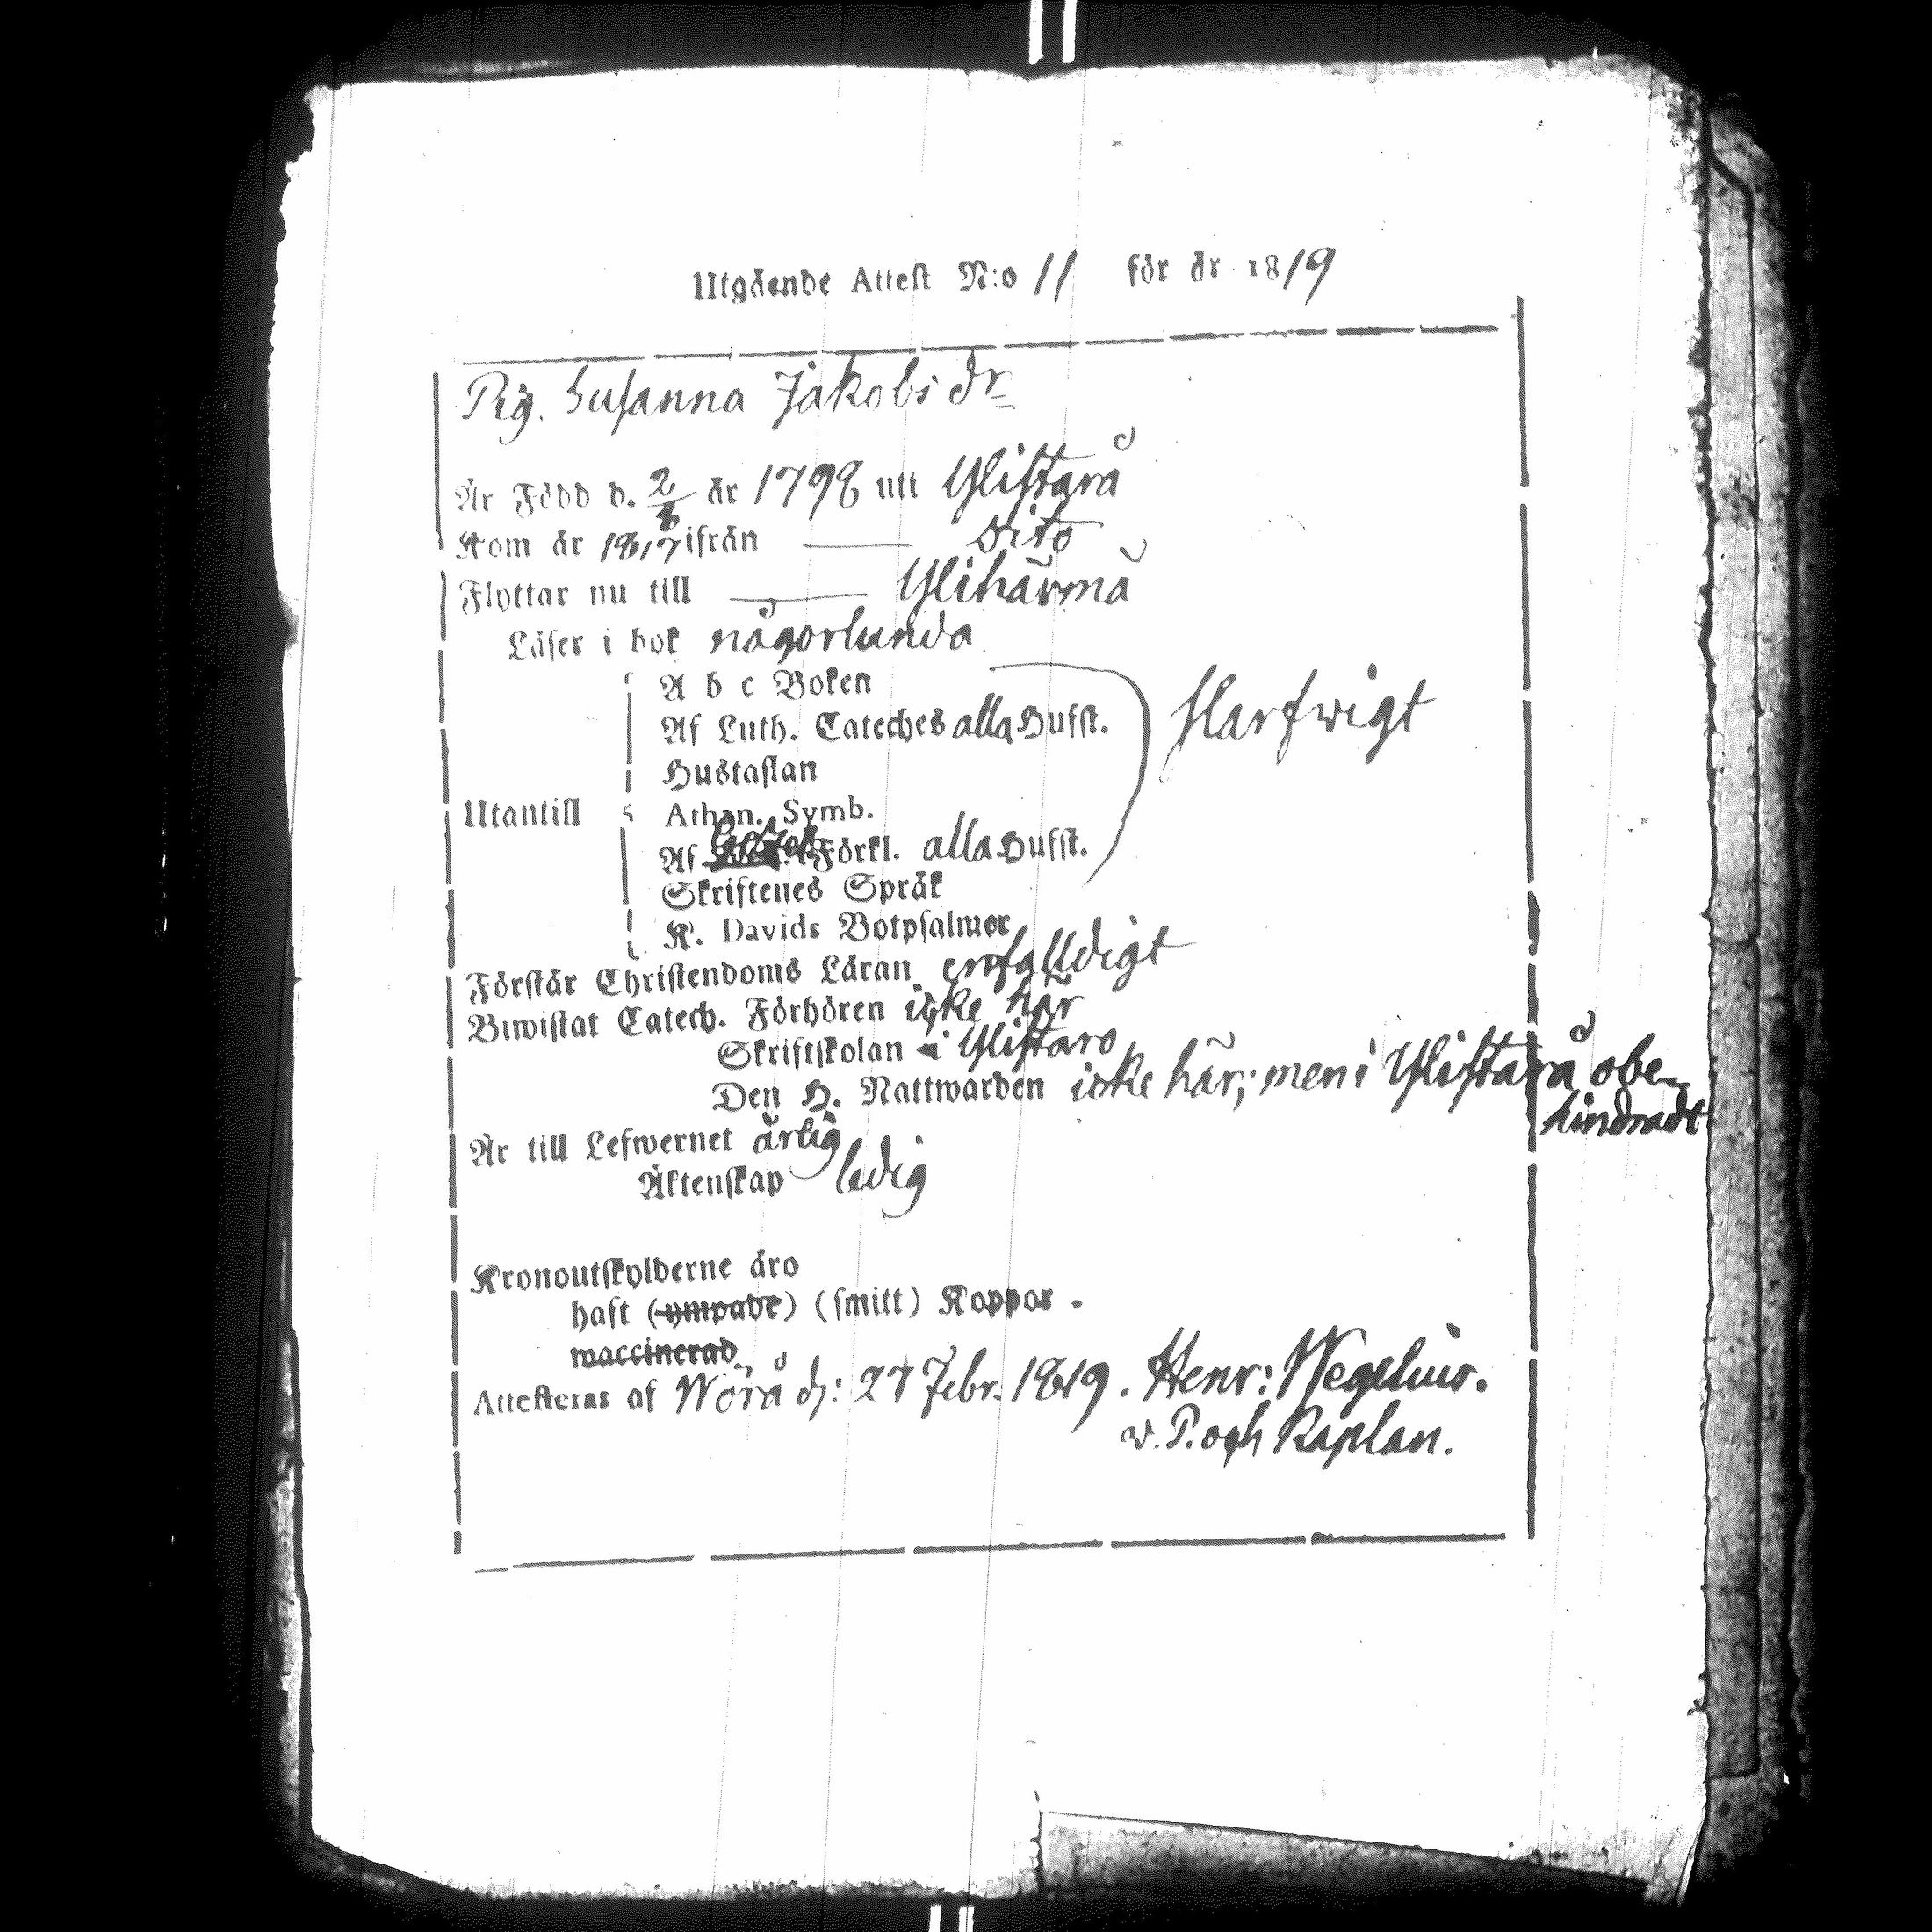 Utgående Attest N:o 11 för år 1819
Pig. Susanna Jakobsdr
Är Född d. 2/6 år 1798 uti Ylistarå
Kom år 1817 ifrån — dito
Flyttar nu till — Ylihärmä
Läser i bok någorlunda
A b c Boken
Af Luth. Cateches alla Hufst. Skarfwigt
Hustaflan
Utantill Athan. Symb.
Af Förkl. alla Hufst.
Skriftenes Språk
K. Davids Botpsalmer
Förstår Christendoms Läran enfalldigt
Biwistat Catech. Förhören icke här
Skriftskolan i Ylistaro
Den H. Nattwarden icke här; men i Ylistarå obe-
hindradt
Är till Lefwernet ärlig
Äktenskap ledig
Kronoutskylderne äro
haft (ympade) (smitt) Koppor.
waccinerad
Attesteras af Wörå d: 27 Febr. 1819. Henr: Wegelius.
v. P. och Kaplan.